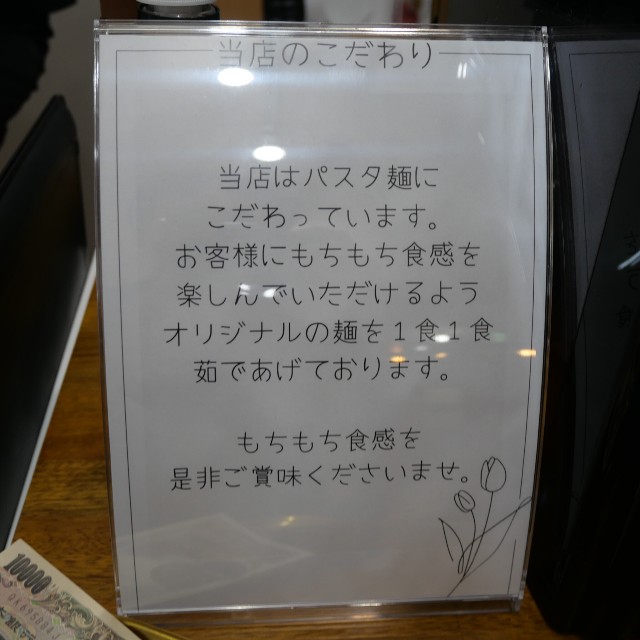 当店のこだわり
当店はパスタ麺に
こだわっています。
お客様にもちもち食感を
楽しんでいただけるよう
オリジナルの麺を１食１食
茹であげております。
もちもち食感を
是非ご賞味くださいませ。
10000